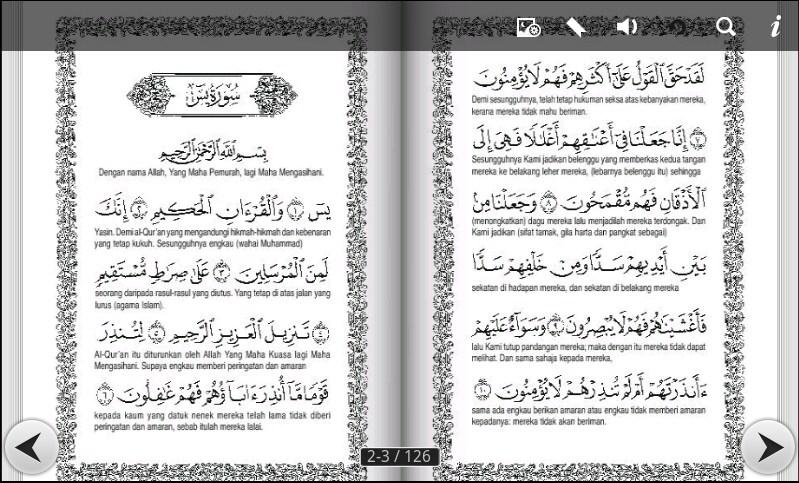 سورة يس
بِسْمِ اللَّهِ الرَّحْمَٰنِ الرَّحِيمِ
Dengan nama Allah, Yang Maha Pemurah, lagi Maha Mengasihani.
يسٓ ١ وَالْقُرْءَانِ الْحَكِيمِ ٢ إِنَّكَ
Yasin. Demi al-Qur'an yang mengandungi hikmah-hikmah dan kebenaran
yang tetap kukuh. Sesungguhnya engkau (wahai Muhammad)
لَمِنَ الْمُرْسَلِينَ ٣ عَلَىٰ صِرَاطٍ مُّسْتَقِيمٍ
seorang daripada rasul-rasul yang diutus. Yang tetap di atas jalan yang
lurus (agama Islam).
٤ تَنزِيلَ الْعَزِيزِ الرَّحِيمِ ٥ لِتُنذِرَ
Al-Qur'an itu diturunkan oleh Allah Yang Maha Kuasa lagi Maha
Mengasihani. Supaya engkau memberi peringatan dan amaran
قَوْمًا مَّا أُنذِرَ ءَابَاؤُهُمْ فَهُمْ غَافِلُونَ ٦
kepada kaum yang datuk nenek mereka telah lama tidak diberi
peringatan dan amaran, sebab itulah mereka lalai.
لَقَدْ حَقَّ الْقَوْلُ عَلَىٰ أَكْثَرِهِمْ فَهُمْ لَا يُؤْمِنُونَ
Demi sesungguhnya, telah tetap hukuman seksa atas kebanyakan mereka,
kerana mereka tidak mahu beriman.
٧ إِنَّا جَعَلْنَا فِي أَعْنَاقِهِمْ أَغْلَالًا فَهِيَ إِلَى
Sesungguhnya Kami jadikan belenggu yang memberkas kedua tangan
mereka ke belakang leher mereka, (lebarnya belenggu itu) sehingga
الْأَذْقَانِ فَهُم مُّقْمَحُونَ ٨ وَجَعَلْنَا مِن
(menongkatkan) dagu mereka lalu menjadilah mereka terdongak. Dan
Kami jadikan (sifat tamak, gila harta dan pangkat sebagai)
بَيْنِ أَيْدِيهِمْ سَدًّا وَمِنْ خَلْفِهِمْ سَدًّا
sekatan di hadapan mereka, dan sekatan di belakang mereka
فَأَغْشَيْنَاهُمْ فَهُمْ لَا يُبْصِرُونَ ٩ وَسَوَاءٌ عَلَيْهِمْ
lalu Kami tutup pandangan mereka; maka dengan itu mereka tidak dapat
melihat. Dan sama sahaja kepada mereka,
ءَأَنذَرْتَهُمْ أَمْ لَمْ تُنذِرْهُمْ لَا يُؤْمِنُونَ ١٠
sama ada engkau berikan amaran atau engkau tidak memberi amaran
kepadanya: mereka tidak akan beriman.
2-3 / 126